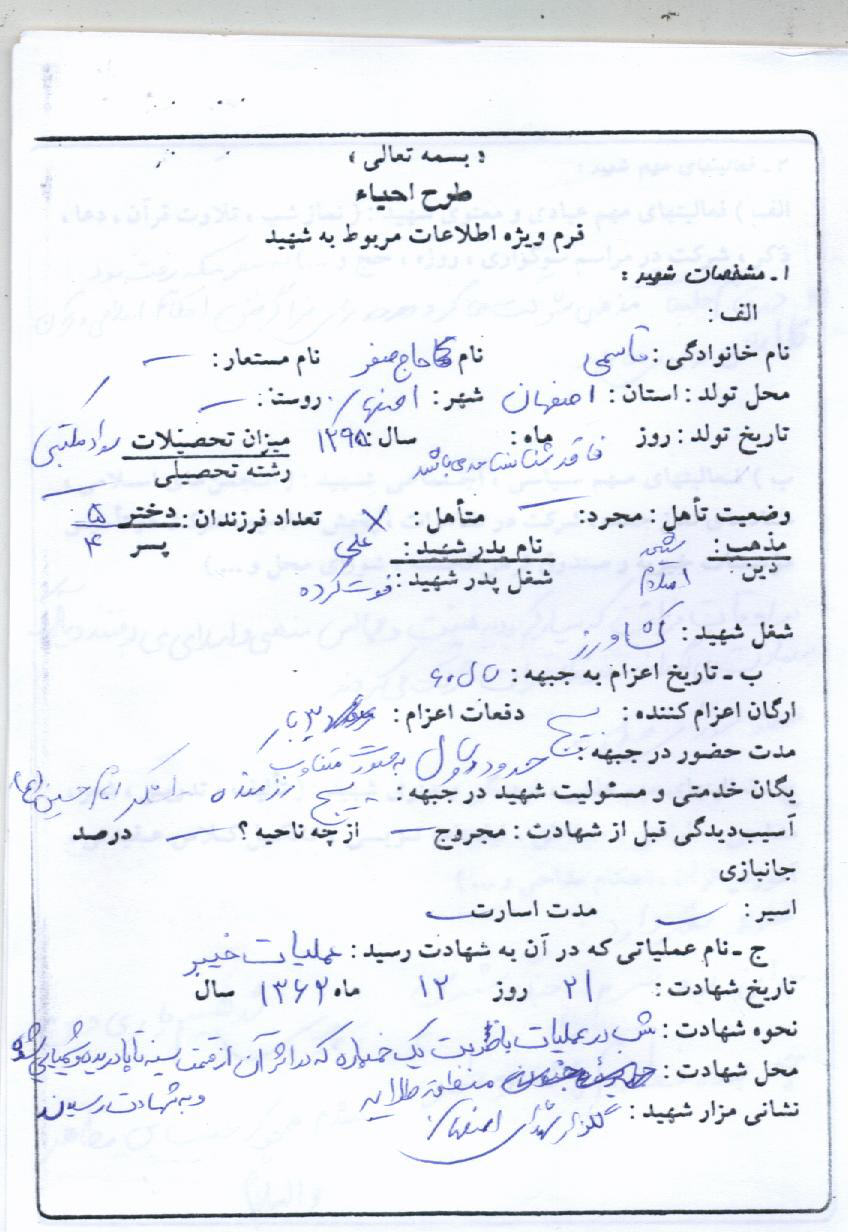 « بسمه تعالی »
طرح احیاء
فرم ویژه اطلاعات مربوط به شهید
۱ ـ مشخصات شهید :
الف :
نام خانوادگی : قاسمی نام حاج صفر نام مستعار : —
محل تولد : استان : اصفهان شهر : اصفهان روستا : —
تاریخ تولد : روز ماه : سال : ۱۲۹۵ میزان تحصیلات سواد مکتبی
فاقد شناسنامه می باشد رشته تحصیلی —
وضعیت تأهل : مجرد : — متأهل : × تعداد فرزندان : دختر ۵
مذهب : شیعه نام پدر شهید : علی پسر ۴
دین : اسلام شغل پدر شهید : فوت کرده
شغل شهید : کشاورز
ب ـ تاریخ اعزام به جبهه : سال ۶۰
ارگان اعزام کننده : بسیج دفعات اعزام : ۳ بار
مدت حضور در جبهه : حدود دو سال به صورت متناوب
یگان خدمتی و مسئولیت شهید در جبهه : بسیج رزمنده لشکر امام حسین (ع)
آسیب‌دیدگی قبل از شهادت : مجروح — از چه ناحیه ؟ — درصد
جانبازی
اسیر : — مدت اسارت —
ج ـ نام عملیاتی که در آن به شهادت رسید : عملیات خیبر
تاریخ شهادت : ۲۱ روز ۱۲ ماه ۱۳۶۲ سال
نحوه شهادت : شب در عملیات یک خمپاره که در اثر آن از قسمت سینه تا پا
محل شهادت : منطقه طلائیه و به شهادت رسیدند
نشانی مزار شهید : گلزار شهدای اصفهان